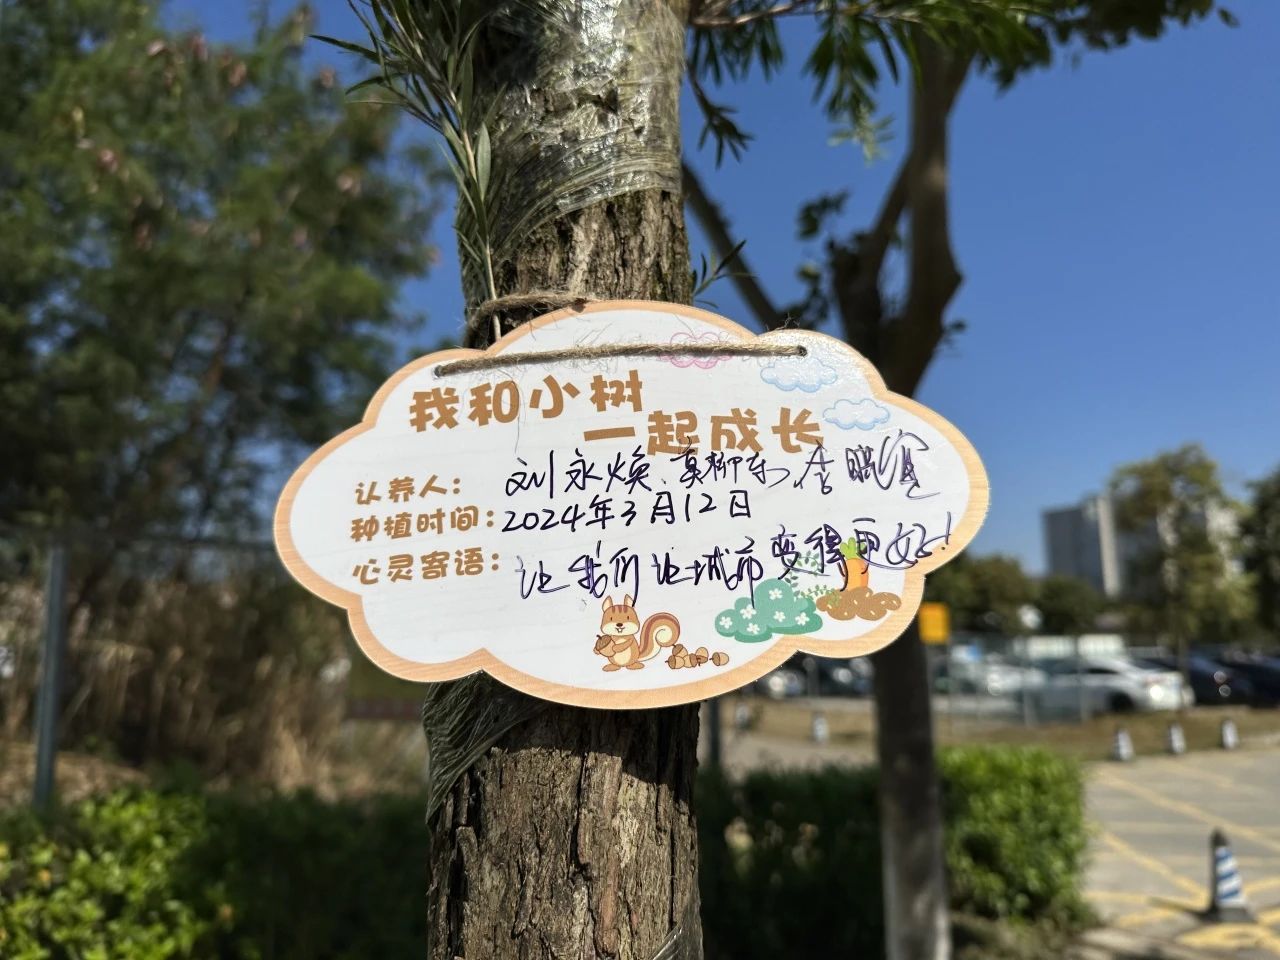 我和小树
一起成长
认养人: 刘永焕、莫柳东、李
种植时间: 2024年3月12日
心灵寄语: 让我们让城市变得更好!